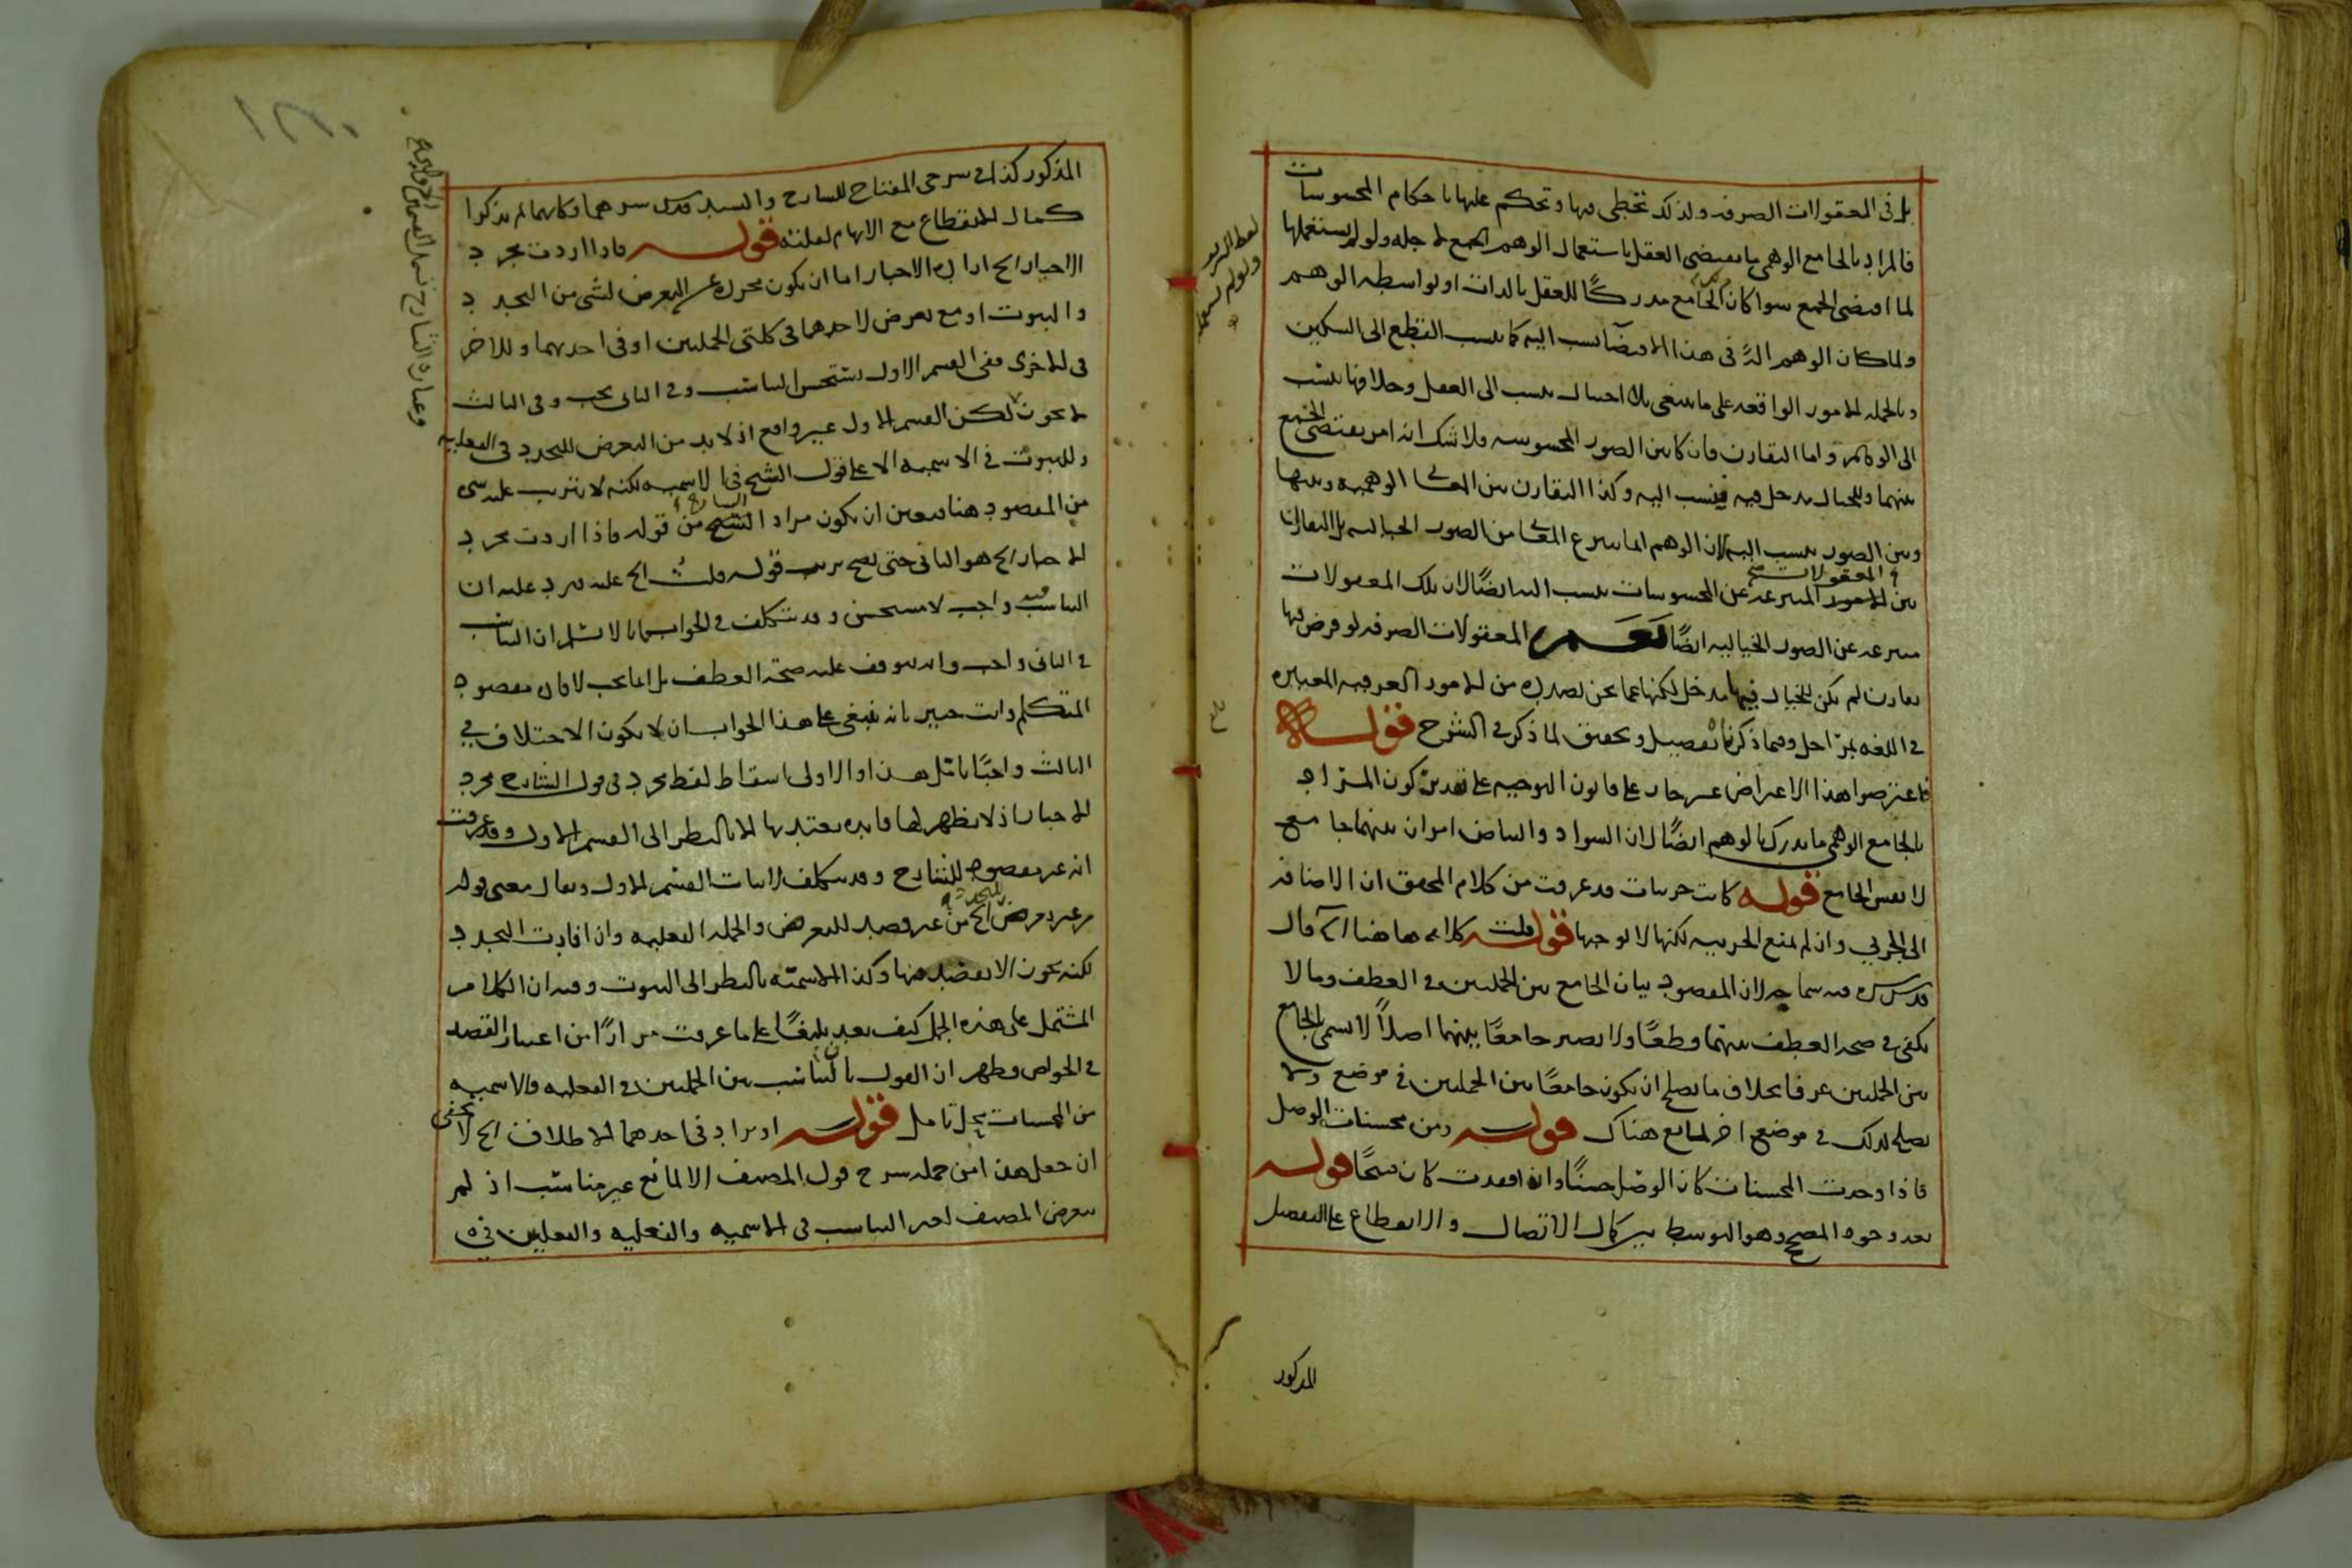 بل فى المعقولات الصرفه ولذلك تخطى فيها وتحكم عليها باحكام المحسوسات
فالمراد بالجامع الوهمى ما يقتضى العقل باستعمال الوهم الجمع لاجله ولو لم يستعملها
لما اقتضى الجمع سوا كان الجامع مدركًا للعقل بالذات او بواسطه الوهم
ولما كان الوهم الة فى هذا الاقتضا نسب اليه كما ينسب القطع الى السكين
وبالجمله الامور الواقعه على ما ينبغى بلا احتيال ينسب الى العقل وخلافها ينسب
الى الوهم واما التقارن فان كان بين الصور المحسوسه ولا شك انه امر يقتضى الجمع
بينهما وللخيال مدخل فيه فينسب اليه وكذا التقارن بين المعانى الوهميه وبينها
وبين الصور ينسب اليه لان الوهم انما ينتزع المعانى من الصور الخياليه بل التقارن
بين المعقولات المنتزعه عن المحسوسات ينسب اليه ايضًا لان تلك المعقولات
منتزعه عن الصور الخياليه ايضًا نعم المعقولات الصرفه لو فرض فيها
تقارن لم يكن للخيال فيها مدخل لكنها عما نحن بصدده من الامور العرفيه المعتبره
فى اللغه بمراحل وفيما ذكرنا تفصيل وتحقيق لما ذكر فى الشرح قوله
فاعترضوا هذا الاعتراض غير جار على قانون التوجيه على تقدير كون المراد
بالجامع الوهمى ما يدرك بالوهم ايضًا لان السواد والبياض امران بينهما جامع
لا نفس الجامع قوله كانت جزئيات قد عرفت من كلام المحقق ان الاضافه
الى الجزئى وان لم تمنع الجزئيه لكنها لا توجبها قوله قلت كلامه هاهنا الخ قال
قدس سره فيه سماجه لان المقصود بيان الجامع بين الجملتين فى العطف وما لا
يكفى فى صحه العطف بينهما قطعًا ولا يصير جامعًا بينهما اصلًا لا يسمى الجامع
بين الجملتين عرفا بخلاف ما يصلح ان يكون جامعًا بين الجملتين فى موضع ولا
يصلح لذلك فى موضع اخر لمانع هناك قوله ومن محسنات الوصل
فاذا وجدت المحسنات كان الوصل حسنًا وان فقدت كان قبيحًا قوله
بعد وجود المصحح وهو التوسط بين كمال الاتصال والانقطاع على التفصيل
المذكور
المذكور كذا فى شرحى المفتاح للشارح والسيد قدس سرهما وكانهما لم يذكرا
كمال الانقطاع مع الايهام لقلته قوله فاذا اردت مجرد
الاخبار الخ اراد ان الاخبار اما ان يكون مجردا عن التعرض لشى من التجدد
والثبوت او مع تعرض لاحدهما فى كلتى الجملتين او فى احديهما وللاخر
فى الاخرى ففى القسم الاول يستحسن التناسب وفى الثانى يجب وفى الثالث
لا يجوز لكن القسم الاول غير واقع اذ لا بد من التعرض للتجدد فى الفعليه
وللثبوت فى الاسميه الا على قول الشيخ فى الاسميه لكنه لا يترتب عليه شى
من المقصود هنا فتعين ان يكون مراد الشارح من قوله فاذا اردت مجرد
الاخبار الخ هو الثانى حتى يصح ترتب قوله قلت الخ عليه فيرد عليه ان
التناسب فيه واجب لا مستحسن وقد يتكلف فى الجواب بانا لا نسلم ان التناسب
فى الثانى واجب وانه يتوقف عليه صحة العطف بل انما يجب لافاده مقصود
المتكلم وانت خبير بانه ينبغى على هذا الجواب ان لا يكون الاختلاف فى
الثالث واجبًا تامل هذا والاولى اسقاط لفظ مجرد فى قول الشارح مجرد
الاخبار اذ لا يظهر لها فايده يعتد بها الا بالنظر الى القسم الاول وقد عرفت
انه غير مقصود للشارح وقد يتكلف لاثبات القسم الاول ويقال معنى قوله
من غير تعرض للتجدد الخ من غير قصد للتعرض والجمله الفعليه وان افادت التجدد
لكنه يجوز ان لا يقصد منها وكذا الاسميه بالنظر الى الثبوت وفيه ان الكلام
المشتمل على هذه الجمل كيف يعد بليغًا على ما عرفت مرارًا من اعتبار القصد
فى الخواص فظهر ان القول بان التناسب بين الجملتين فى الفعليه والاسميه
من المحسنات محل تامل قوله او يراد فى احدهما الاطلاق الخ لا يخفى
ان جعل هذا من جمله شرح قول المصنف الا لمانع غير مناسب اذ لم
يتعرض المصنف لغير التناسب فى الاسميه والفعليه والفعليتين فى